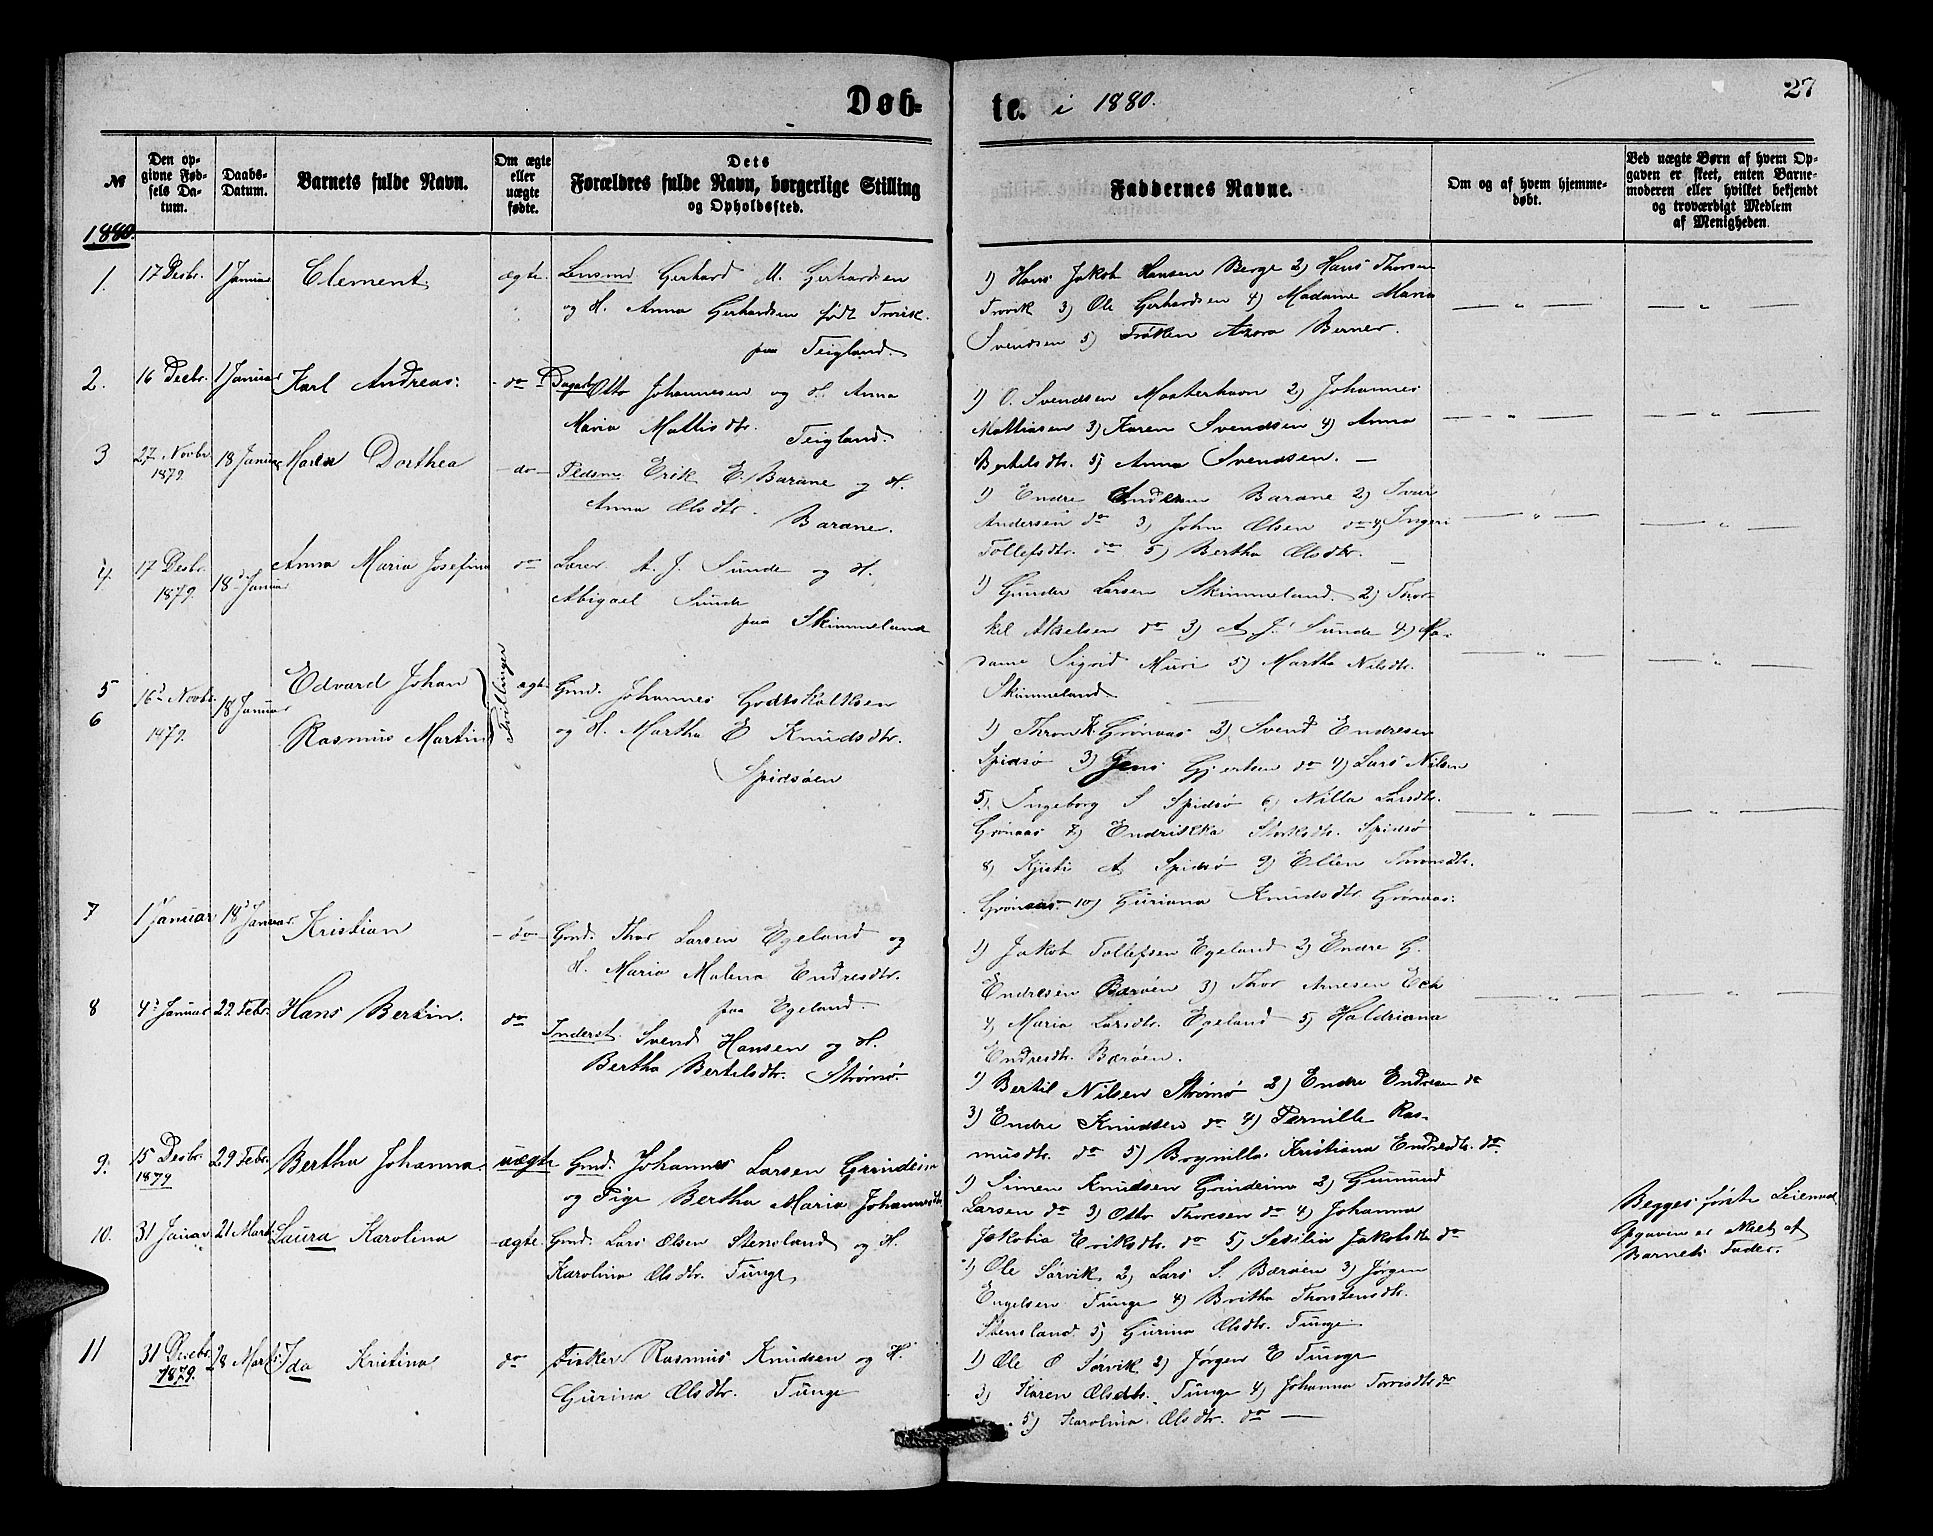 Døb-
te. i 1880.
27
№
Den op-
givne Fød-
sels Da-
tum.
Daabs-
Datum.
Barnets fulde Navn.
Om ægte
eller
uægte
fødte.
Dets
Forældres fulde Navn, borgerlige Stilling
og Opholdssted.
Faddernes Navne.
Om og af hvem hjemme-
døbt.
Ved uægte Børn af hvem Op-
gaven er skeet, enten Barne-
moderen eller hvilket bekjendt
og troværdigt Medlem
af Menigheden.
1880.
1. 17 Desbr. 1 Januar Clement ægte. Lensmd Gerhard M. Gerhardsen
og H. Anna Gerhardsen født Trovik.
paa Teigland.
1) Hans Jakob Hansen Berge 2) Hans Thorsen
Trovik 3) Ole Gerhardsen 4) Madame Maria
Svendsen 5) Frøken Azora Berner.
2. 16 Decbr. 1 Januar Karl Andreas. do Otto Johannesen og H. Anna
Maria Mattisdtr.
Teigland.
1) O. Svendsen Mosterhavn 2) Johannes
Mattiasen 3) Karen Svendsen 4) Anna
Bertelsdtr. 5) Anna Svendsen. —
3 27 Novbr 1879. 18 Januar Maren Dorthea do Pldsm. Erik E. Barane og H.
Anna Olsdtr.
Barane.
1) Endre Andersen Barane 2) Ivar
Andersen do 3) John Olsen do 4) Ingeri
Tollefsdtr. do 5) Bertha Olsdtr. —
4. 17 Desbr. 1879. 18 Januar Anna Maria Josefina do Lærer A. J. Sunde og H.
Abigael Sunde
paa Skimmeland
1) Gunder Larsen Skimmeland. 2) Thor-
kel Akselsen do 3) A J. Sunde 4) Ma-
dame Sigrid Muri 5) Martha Nilsdtr.
Skimmeland.
5 16 Novbr 1879. 18 Januar Edvard Johan
6 Rasmus Martin Tvillinger ægte Gmd. Johannes Godtskalksen
og H. Martha E Knudsdtr.
Spidsøen
1) Thron K. Grønaas 2) Svend Endresen
Spidsø 3) Jens Gjertsen do 4) Lars Nilsen
5) Ingeborg S Spidsø 6) Nilla Larsdtr.
Grønaas 7) Endrikka Spidsø
8) Kjisti A Spidsø 9) Ellen Thronsdtr.
Grønaas. 10) Guriana Knudsdtr. Grønaas.
7 1 Januar 18 Januar. Kristian do Gmd. Thor Larsen Egeland og
H. Maria Malena Endresdtr.
paa Egeland.
1) Jakob Tollefsen Egeland 2) Endre G.
Endresen Bærøen 3) Thor Arnesen Eck
4) Maria Larsdtr. Egeland 5) Haldriana
Endresdtr. Bærøen.
8 4 Januar 22 Febr. Hans Bertin. do Inderst. Svend Hansen og H.
Bertha Bertelsdtr. Strømø.
1) Bertil Nilsen Strømø 2) Endre Endresen do
3) Endre Knudsen do 4) Pernille Ras-
musdtr. do 5) Brynilla Kristiana Endresdtr. do
9. 15 Desbr. 1879 29 Febr. Bertha Johanna uægte Gmd. Johannes Larsen Grindeim
og Pige Bertha Maria Johannesdtr.
1) Simen Knudsen Grindeim 2) Gunuld
Larsen do 3) Otto Thoresen do 4) Johanna
Jakobia Eriksdtr. do 5) Sesilia Jakobsdtr do
Begges første Leiermaal
Opgaven er skeet af
Barnets Fader.
10. 31 Januar 21 Marts Laura Karolina ægte. Gmd. Lars Olsen Stensland og H.
Karolina Olsdtr. Tunge
1) Ole Sørvik 2) Lars S. Bærøen 3) Jørgen
Engelsen Tunge 4) Britha Thorstensdtr.
Stensland 5) Gurina Olsdtr. Tunge.
11 31 Decbr. 1879. 28 Marts Ida Kristina do Fisker Rasmus Knudsen og H.
Gurina Olsdtr. Tunge
1) Ole O Sørvik 2) Jørgen E Tunge
3) Karen Olsdtr. Tunge 4) Johanna do
5) Karolina Olsdtr. do —